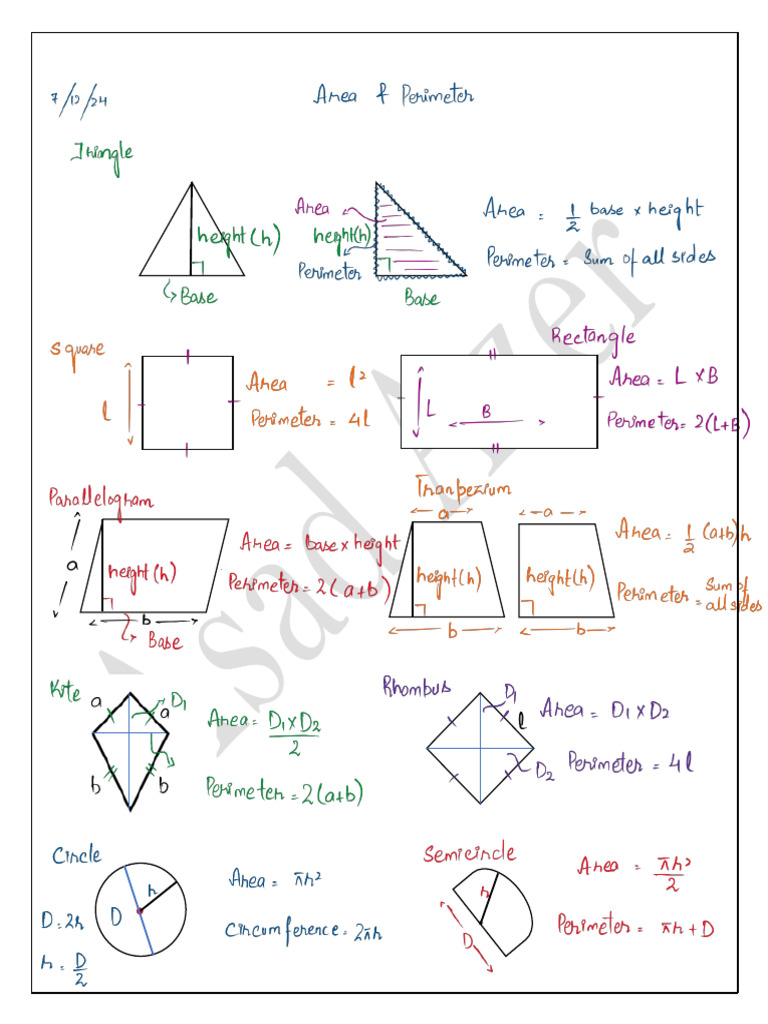 7/12/24
Area & Perimeter
Triangle
height(h)
Base
Area
height(h)
Perimeter
Base
Area = 1/2 base × height
Perimeter = Sum of all sides
Square
l
Area = l²
Perimeter = 4l
Rectangle
L
B
Area = L × B
Perimeter = 2(L+B)
Parallelogram
a
height(h)
b
Base
Area = base × height
Perimeter = 2(a+b)
Tranpezium
a
height(h)
b
a
height(h)
b
Area = 1/2 (a+b)h
Perimeter = Sum of all sides
Kite
a
D1
a
b
b
Area = D1×D2/2
Perimeter = 2(a+b)
Rhombus
D1
l
D2
Area = D1×D2
Perimeter = 4l
Circle
r
D
D=2r
r = D/2
Area = πr²
Circumference = 2πr
Semicircle
r
D
Area = πr²/2
Perimeter = πr+D
Asad Azer